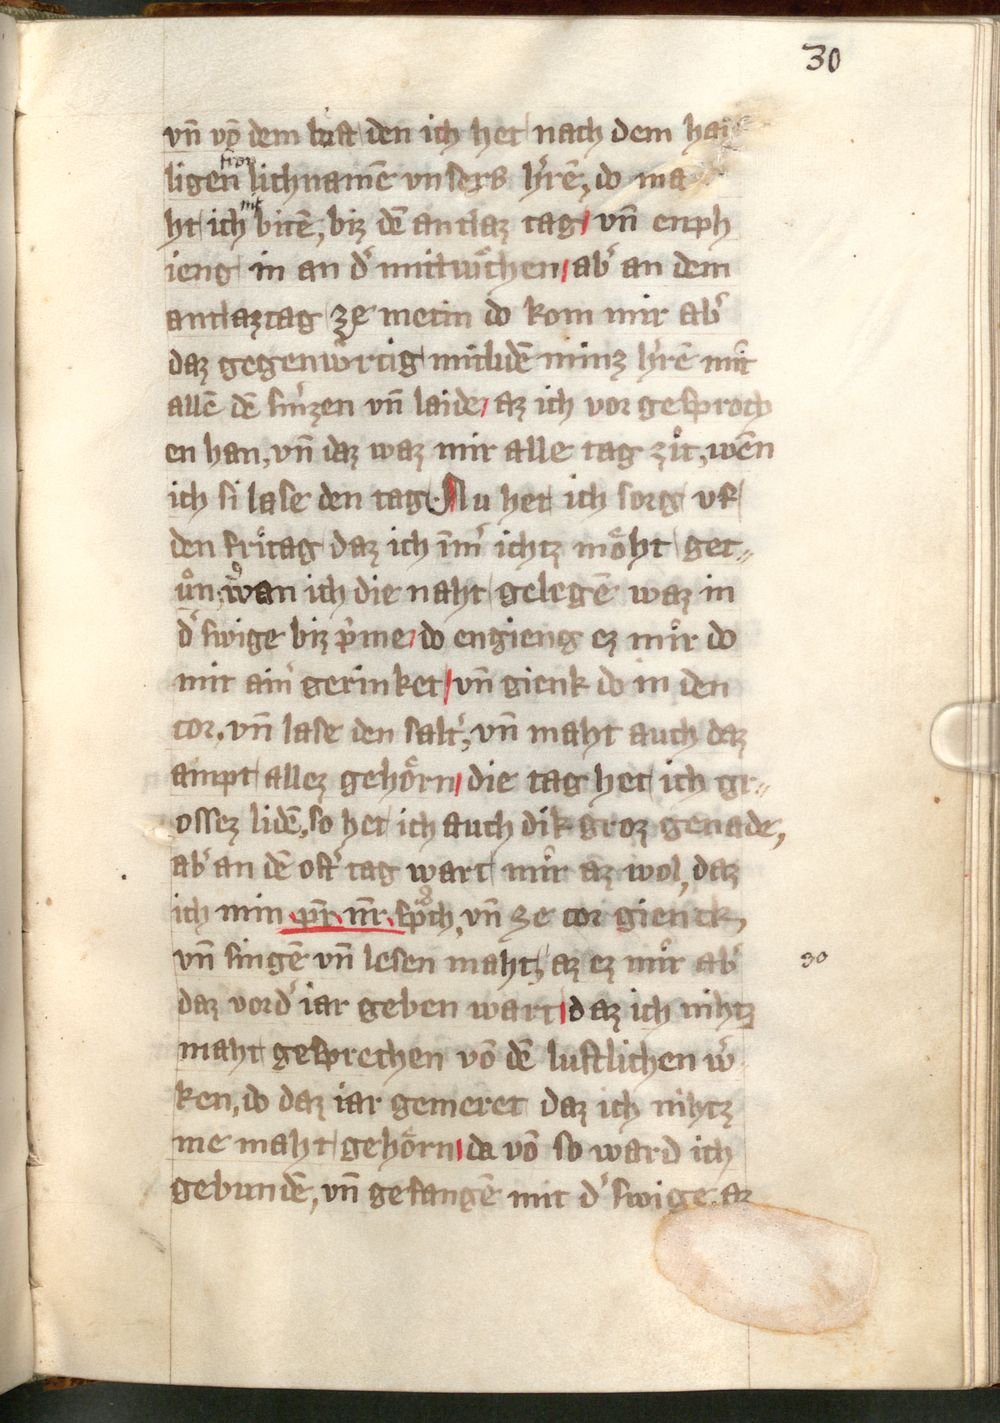 30
vn̄ vō dem lust den ich het nach dem hai
ligen fron lichnamē vnsers h̓rē, do ma
ht ich nit bitē, biz dē antlaz tag vn̄ enph
ieng in an d̓ mitwͤchen, ab̓ an dem
antlaztag ze metin do kom mir ab̓
daz gegenwͤrtig mitlidē minz h̓rē mit
allē dē smͤrzen vn̄ laide, az ich vor gesproch
en han, vn̄ daz waz mir alle tag zit, wēn
ich si lase den tag. Nu het ich sorg vf
den fritag daz ich im̄̓ ichtz moͤht get〃
uͦn, wan ich die naht gelegē waz in
d̓ swige biz p̓me, do engieng ez mir do
mit ain̓ gerinket, vn̄ gienk do in den
cor, vn̄ lase den salt̓, vn̄ maht auch daz
ampt allez gehoͤrn, die tag het ich gr〃
ossez lidē, so het ich auch dik groz genade,
ab̓ an dē ost̓ tag wart mir az wol, daz
ich min pr̄ nr̄ sp̊ch, vn̄ ze cor gienck,
vn̄ singē vn̄ lesen maht, az ez mir ab̓
30
daz vord̓ iar geben wart, daz ich nihtz
maht gesprechen vō dē lustlichen w̓
ken, do daz iar gemeret daz ich nihtz
me maht gehoͤrn, da vō so ward ich
gebundē, vn̄ gefangē mit d̓ swige, az